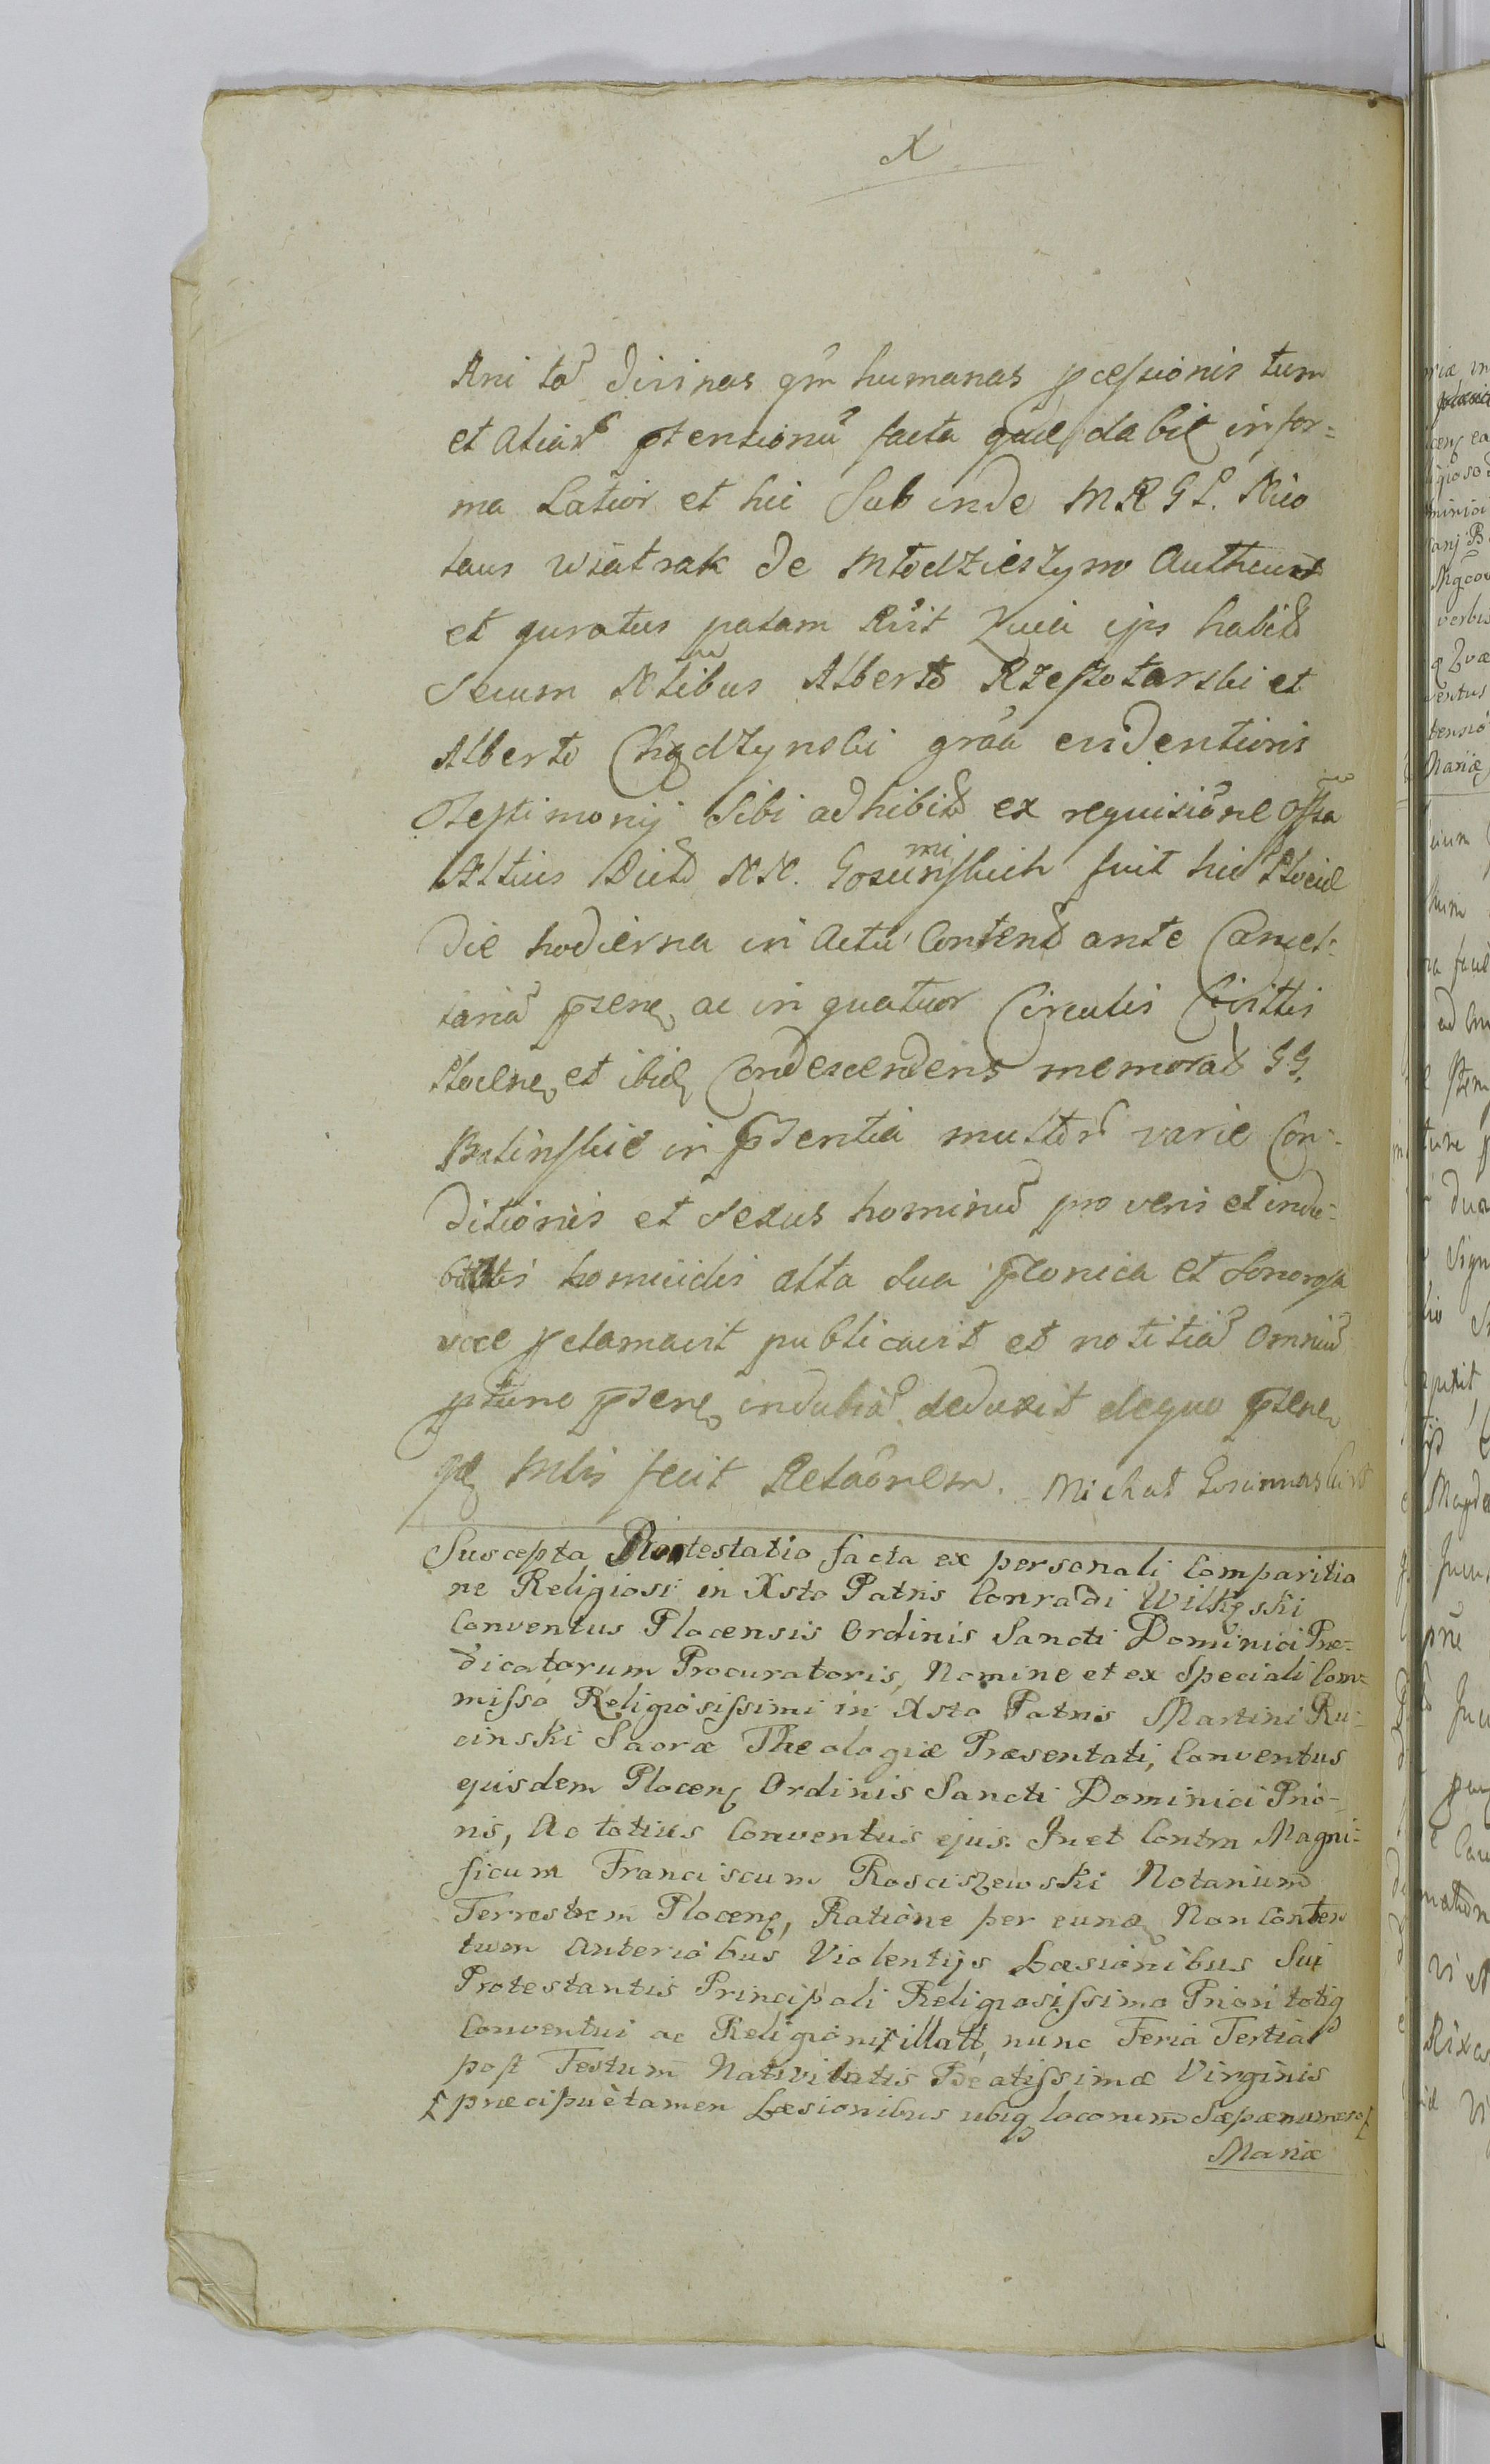 X
Ani tõ divinas qm̃ humanas pcessionis tum
et aliar ptensionũ facta quæ dabit in for=
ma Latior et hic Sub inde M R G L. Nico
laus Wiatrak de Młodzieszyno Authent
et juratus palam Rcit Quia ips habito
Secum Nlibus Alberto Rzeszotarski et
Alberto Chądzynski grãa evidentioris
Testimonij Sibi adhibito ex requisiõne Offa
Altius Dicto NN. Gosiminskich fuit hic Plociæ
Die hodierna in Actũ Contend ante Cancel=
lariã psen ac in quatuor Circulis Civittis
Plocen et ibid Condescendens memorat GG.
Balinskie in psentia multor varie Con=
ditionis et Sexus hominũ pro veris et indu=
bittis homicidis alta sua pconica et Sonorosa
voce pclamavit publicavit et notitiã omniũ
psen indubiã deduxit de quo psen
Mlis fecit Relaõnem. Michał
Suscepta Protestatio facta ex personali Comparitio
ne Religiosi in Xsto Patris Conradi Wilkęski
Conventus Plocensis Ordinis Sancti Dominici Præ=
dicatorum Procuratoris, Nomine et ex Speciali Com=
misso Religiosissimi in Xsto Patris Martini Ru=
cinski Sacræ Theologiæ Præsentati, Conventus
ejusdem Plocen Ordinis Sancti Dominici Prio=
ris, Ac totius Conventus ejus. In et Contra Magni=
ficum Franciscum Rosciszewski Notarium
Terrestrem Plocen, Ratione per eund Non Conten
tum Anterioribus Violentijs Læsionibus Sui
Protestantis Principali Religiosissimo Priori totiq
Conventui ac Religioni illatt, nunc Feria Tertia
post Festum Nativitatis Beatissimæ Virginis
præcipuè tamen Læsionibus ubiq locorum Sæpænumero
Mariæ